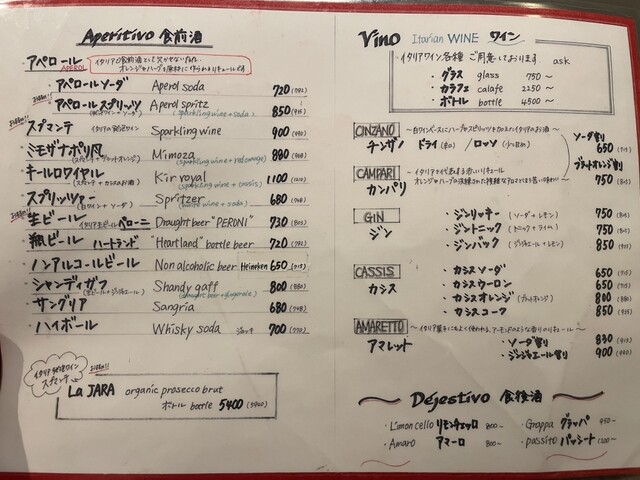 Aperitivo 食前酒
・アペロール
APEROL
イタリアの食前酒として欠かせないお酒。
オレンジやハーブを原料に作られたリキュールです
アペロールソーダ Aperol soda 720 (792)
アペロールスプリッツ Aperol spritz 850 (935)
(白ワイン + ソーダ) (sparkling wine + soda)
・スプマンテ イタリアの発泡ワイン Sparkling wine 900 (990)
・ミモザナポリ風 Mimoza 880 (968)
(スプマンテ + ブラッドオレンジ) (sparkling wine + red orange)
・キールロワイヤル Kir royal 1100 (1210)
(スプマンテ + カシスのお酒) (sparkling wine + cassis)
・スプリッツァー Spritzer 680 (748)
(白ワイン + ソーダ) (white wine + soda)
・生ビール イタリア生ビール ペローニ Draught beer "PERONI" 730 (803)
・瓶ビール ハートランド "Heartland" bottle beer 720 (792)
・ノンアルコールビール Non alcoholic beer Heineken 650 (715)
・シャンディガフ Shandy gaff 800 (880)
(生ビール + ジンジャエール) (draught beer + gingerale)
・サングリア Sangria 680 (748)
・ハイボール Whisky soda ジョッキ 700 (770)
スプマンテ
La JARA organic prosecco brut
ボトル bottle 5400 (5940)
Vino Itarian WINE ワイン
・イタリアワイン各種 ご用意しております ask
・グラス glass 750〜
・カラフェ calafe 2250〜
・ボトル bottle 4500〜
CINZANO 〜白ワインベースにハーブやスピリッツを加えたイタリアのお酒〜
チンザノ ドライ (辛口) / ロッソ (甘口)
CAMPARI 〜イタリアを代表する赤いリキュール
オレンジやハーブの洗練された複雑なアロマとほろ苦い味わい〜
カンパリ
ソーダ割り
650 (715)
ブラッドオレンジ割り
750 (825)
GIN
ジン
・ジンリッキー (ソーダ + レモン) 750 (825)
・ジントニック (トニック + ライム) 750 (825)
・ジンバック (ジンジャエール + レモン) 850 (935)
CASSIS
カシス
・カシスソーダ 650 (715)
・カシスウーロン 650 (715)
・カシスオレンジ (ブラッドオレンジ) 800 (880)
・カシスコーク 850 (935)
AMARETTO 〜イタリア菓子にもよく使われる、アーモンドのような香りのリキュール〜
アマレット
・ソーダ割り 830 (913)
・ジンジャエール割り 900 (990)
Dejestivo 食後酒
・Limoncello リモンチェッロ 800〜
・Grappa グラッパ 950〜
・Amaro アマーロ 800〜
・passito パッシート 1200〜